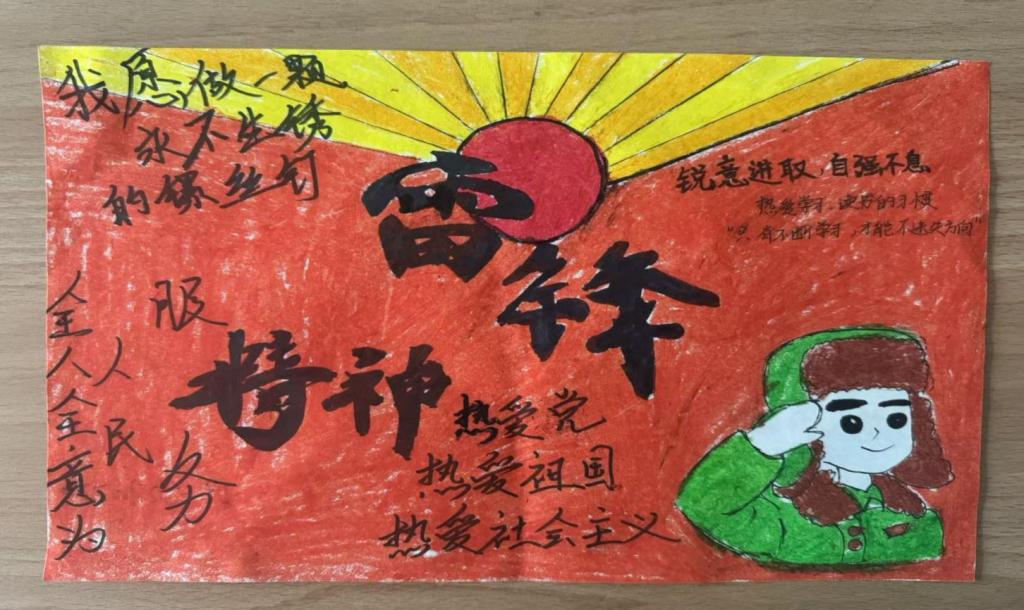 我愿做一颗
永不生锈
的螺丝钉
雷锋
精神
锐意进取，自强不息
热爱学习、读书的习惯
“只有不断学习，才能不迷失方向”
全人全意为
人民
服务
热爱党
热爱祖国
热爱社会主义